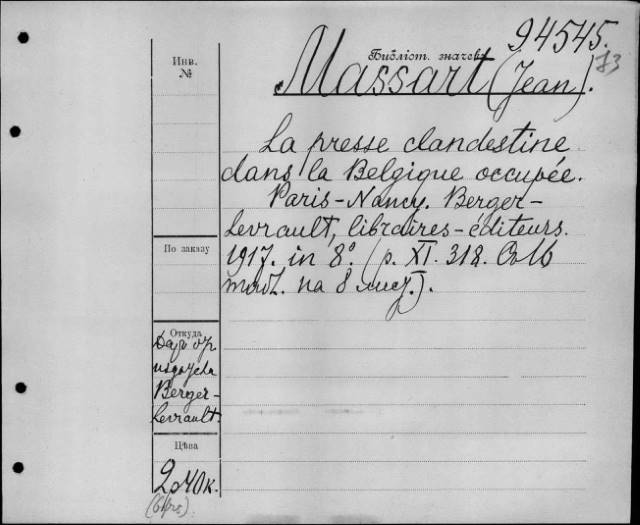 94545.
83
Библіот. значекъ
Massart (Jean).
Инв.
№
La presse clandestine
dans la Belgique occupée.
Paris-Nancy. Berger-
Levrault, libraires-éditeurs.
1917. in 8°. (p. XI. 318. Съ 16
на 8
По заказу
Откуда
Даръ отъ
Berger-
Levrault.
Цѣна
2р40к.